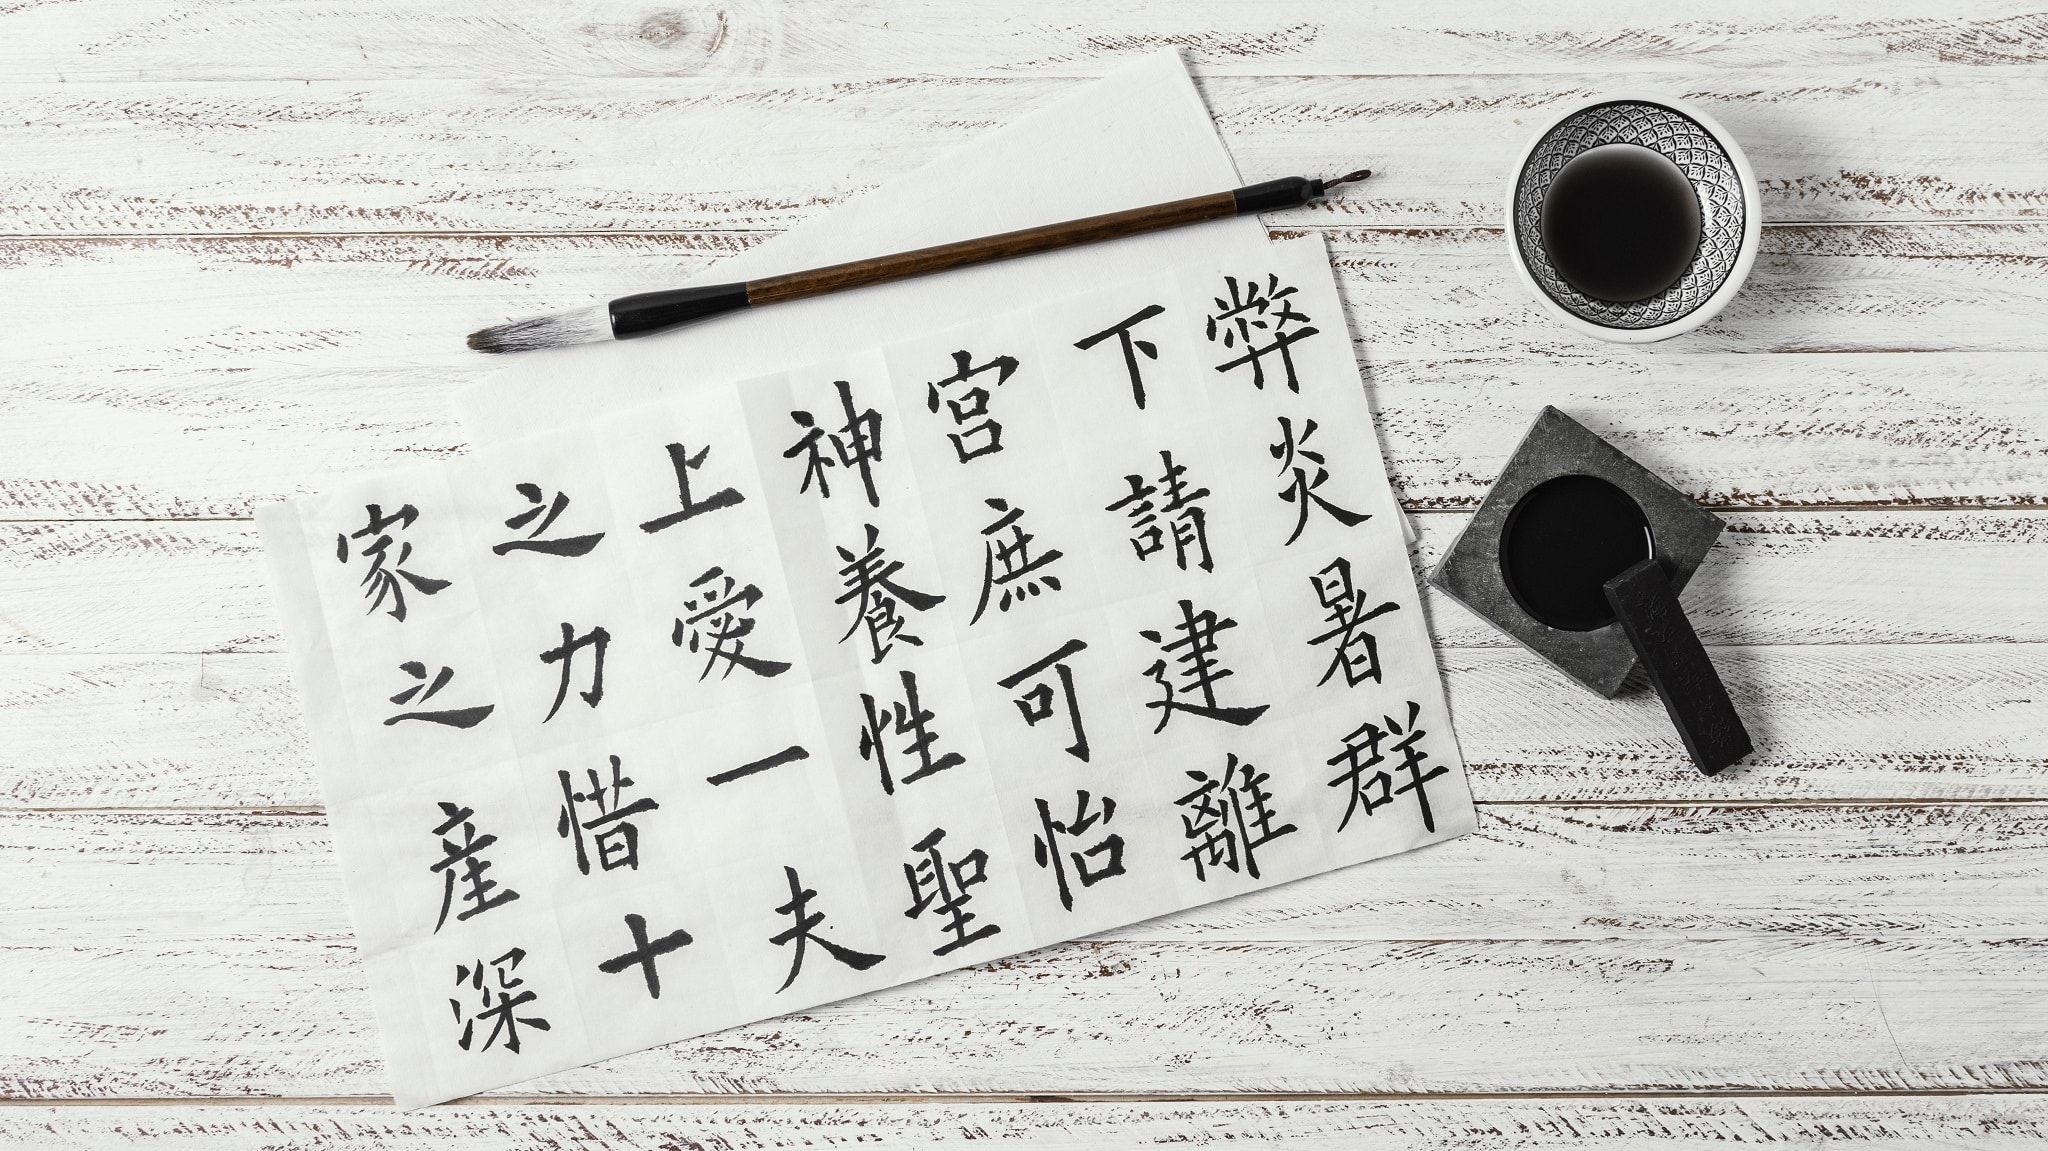 弊炎暑群
下請建離
宮庶可怡
神養性聖
上愛一夫
之力惜十
家之產深